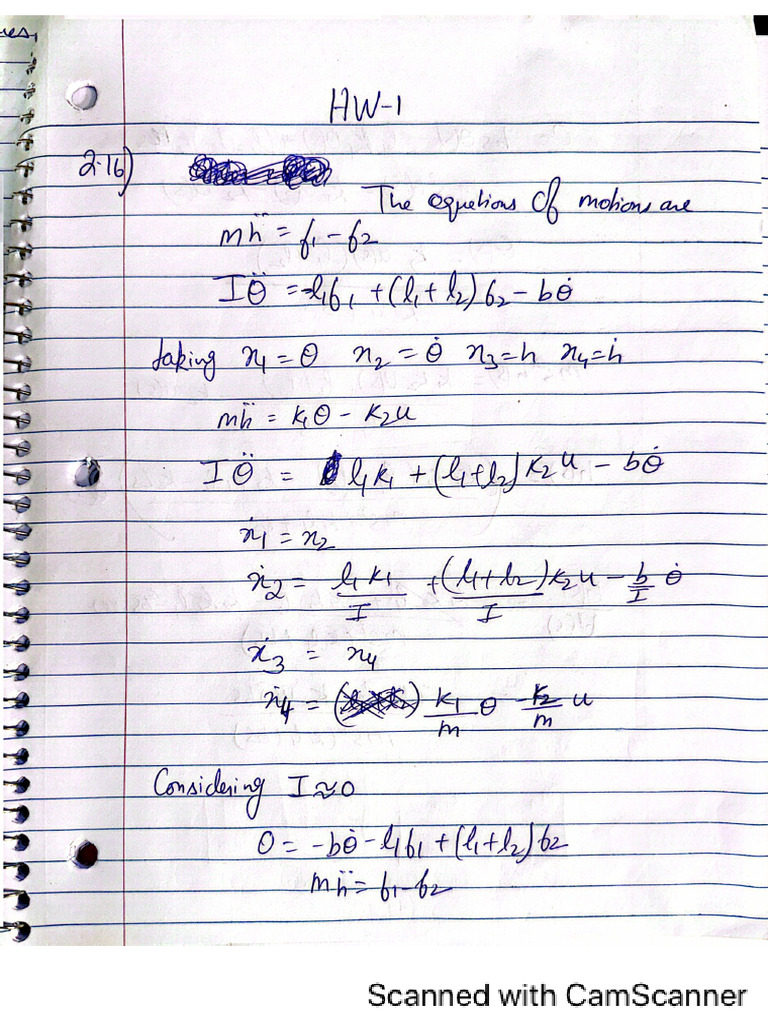 HW-1
2.16)
The equations Of motions are
mḧ = f₁ - f₂
Iθ̈ = -l₁f₁ + (l₁ + l₂) f₂ - bθ̇
taking x₁ = θ x₂ = θ̇ x₃ = h x₄ = ḣ
mḧ = k₁θ - k₂u
Iθ̈ = l₁k₁ + (l₁+l₂) k₂u - bθ̇
ẋ₁ = x₂
ẋ₂ = l₁k₁/I + (l₁+l₂)/I k₂u - b/I θ̇
ẋ₃ = x₄
ẋ₄ = k₁/m θ - k₂/m u
Considering I ≈ 0
0 = -bθ̇ - l₁f₁ + (l₁+l₂) f₂
mḧ = f₁ - f₂
Scanned with CamScanner